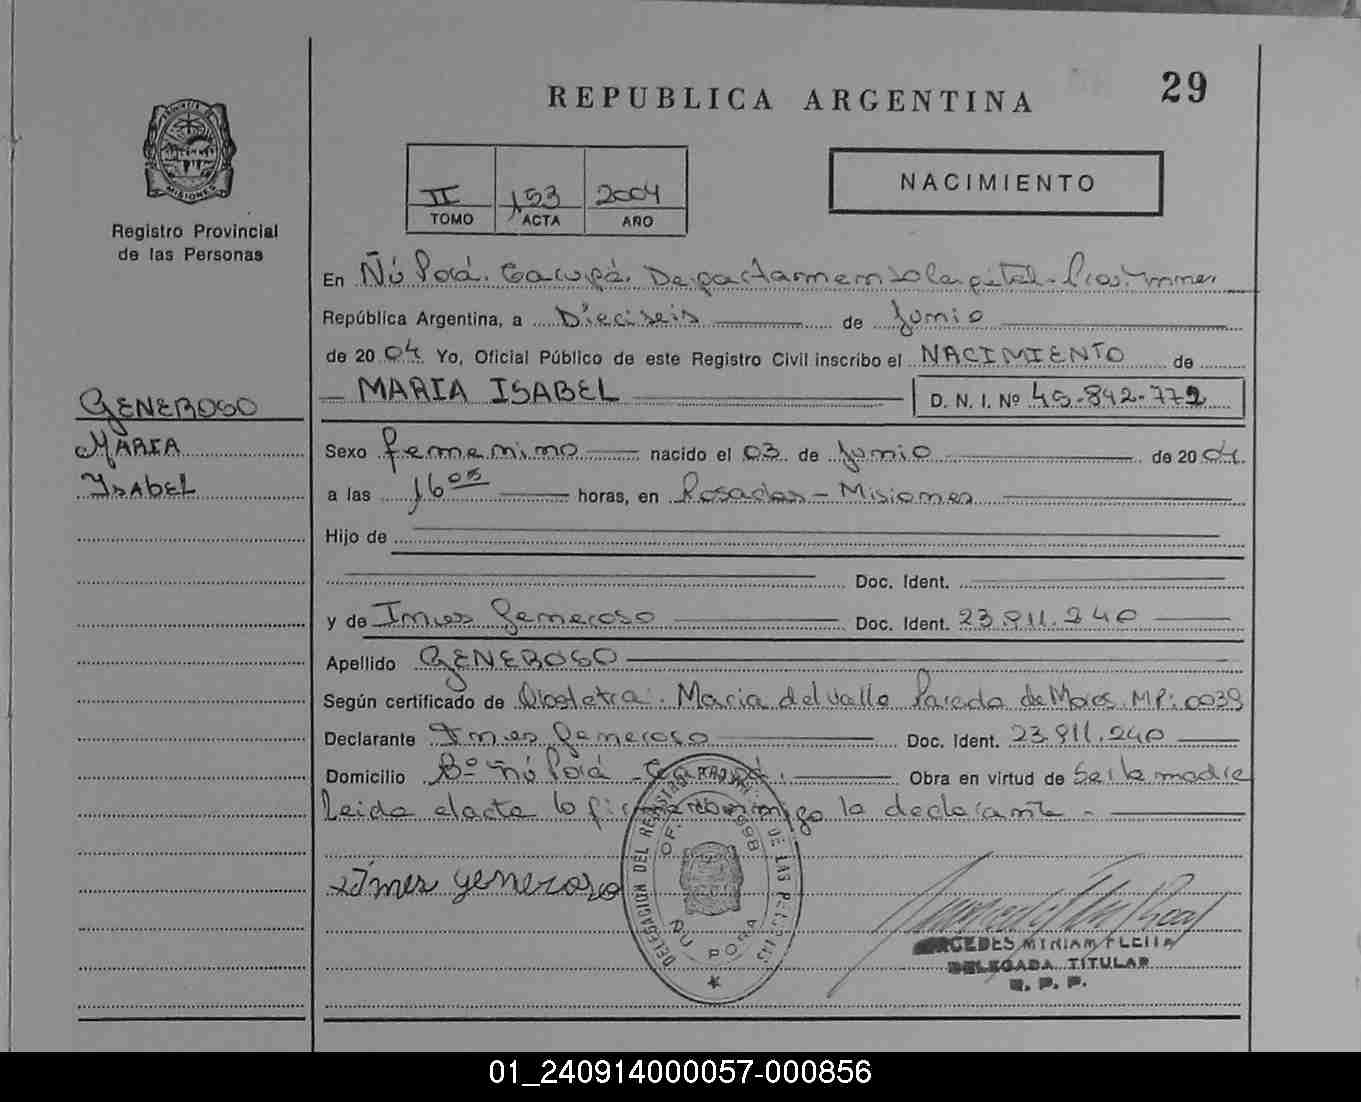 REPUBLICA ARGENTINA
29
PROVINCIA
MISIONES
Registro Provincial
de las Personas
II 153 2004
TOMO ACTA AÑO
NACIMIENTO
En Ñú Porá. Garupá. Departamento Capital.
República Argentina, a Dieciseis de Junio
de 2004. Yo, Oficial Público de este Registro Civil inscribo el NACIMIENTO de
MARIA ISABEL D. N. I. Nº 45.842.772
GENEROSO
MARIA
ISABEL
Sexo femenino nacido el 03 de Junio de 2004.
a las 16 05 horas, en Posadas - Misiones
Hijo de
Doc. Ident.
y de Ines Generoso Doc. Ident. 23.911.240
Apellido GENEROSO
Según certificado de Obstetra: Maria del Valle Pareda de MP: 0039
Declarante Ines Generoso Doc. Ident. 23.911.240
Domicilio Bº Ñú Porá - Garupá. Obra en virtud de Ser la madre
Leida el acta la firma conmigo la declarante.
DELEGACION DEL REGISTRO PROVINCIAL DE LAS PERSONAS
ÑU PORA
Ines Generoso
MIRIAM FLEITA
DELEGADA TITULAR
R. P. P.
01_240914000057-000856